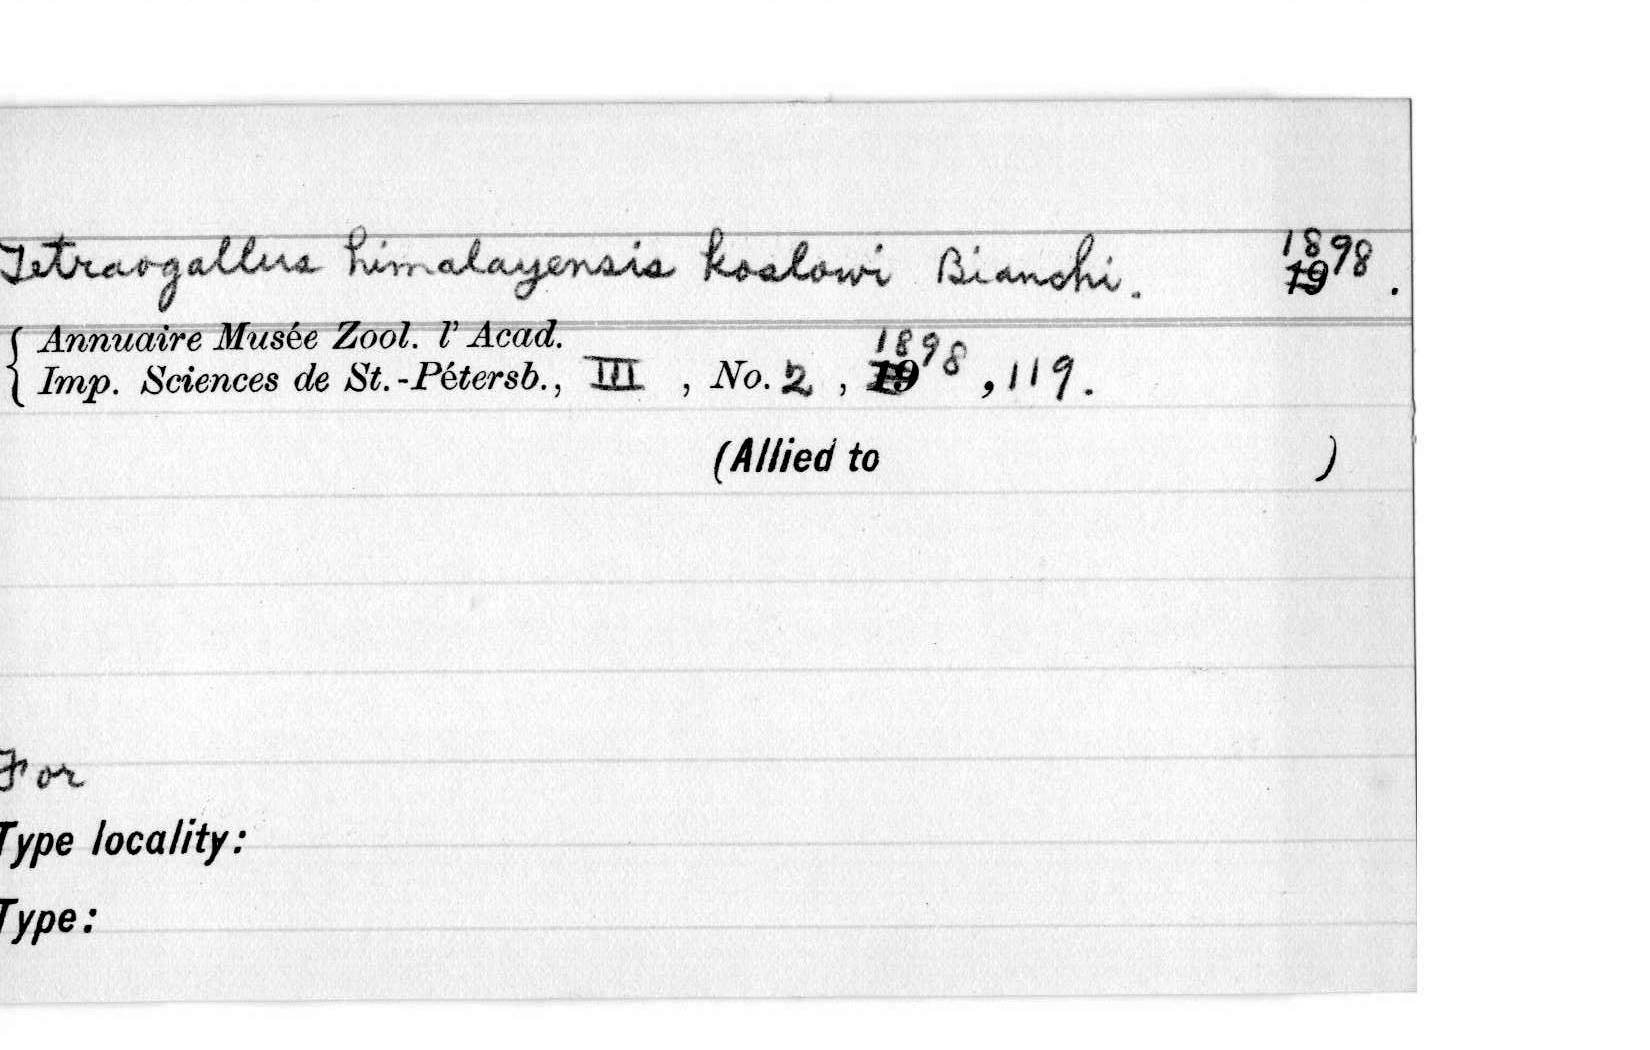 Tetraogallus himalayensis koslowi Bianchi. 1898.
Annuaire Musée Zool. l' Acad.
Imp. Sciences de St.-Pétersb., III, No. 2, 1898, 119.
(Allied to )
For
Type locality:
Type: